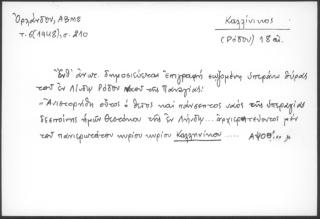 Ὀρλάνδον, ΑΒΜΕ
τ. 6 (1948), σ. 210
Καλλίνικος
(Ρόδου) 18 αἰ.
Ἔνθ' ἀνωτ. δημοσιεύεται ἐπιγραφή σωζομένη ὑπεράνω θύρας
τοῦ ἐν Λίνδῳ Ρόδου ναοῦ τῆς Παναγίας:
"Ἀνιστορήθη οὗτος ὁ θεῖος καί πάνσεπτος ναός τῆς ὑπεραγίας
δεσποίνης ἡμῶν Θεοτόκου τῆς ἐν Λήνδῳ... ἀρχιερατεύοντος μέν
τοῦ πανιερωτάτου κυρίου κυρίου Καλλινίκου .... ΑΨΟΘ'...